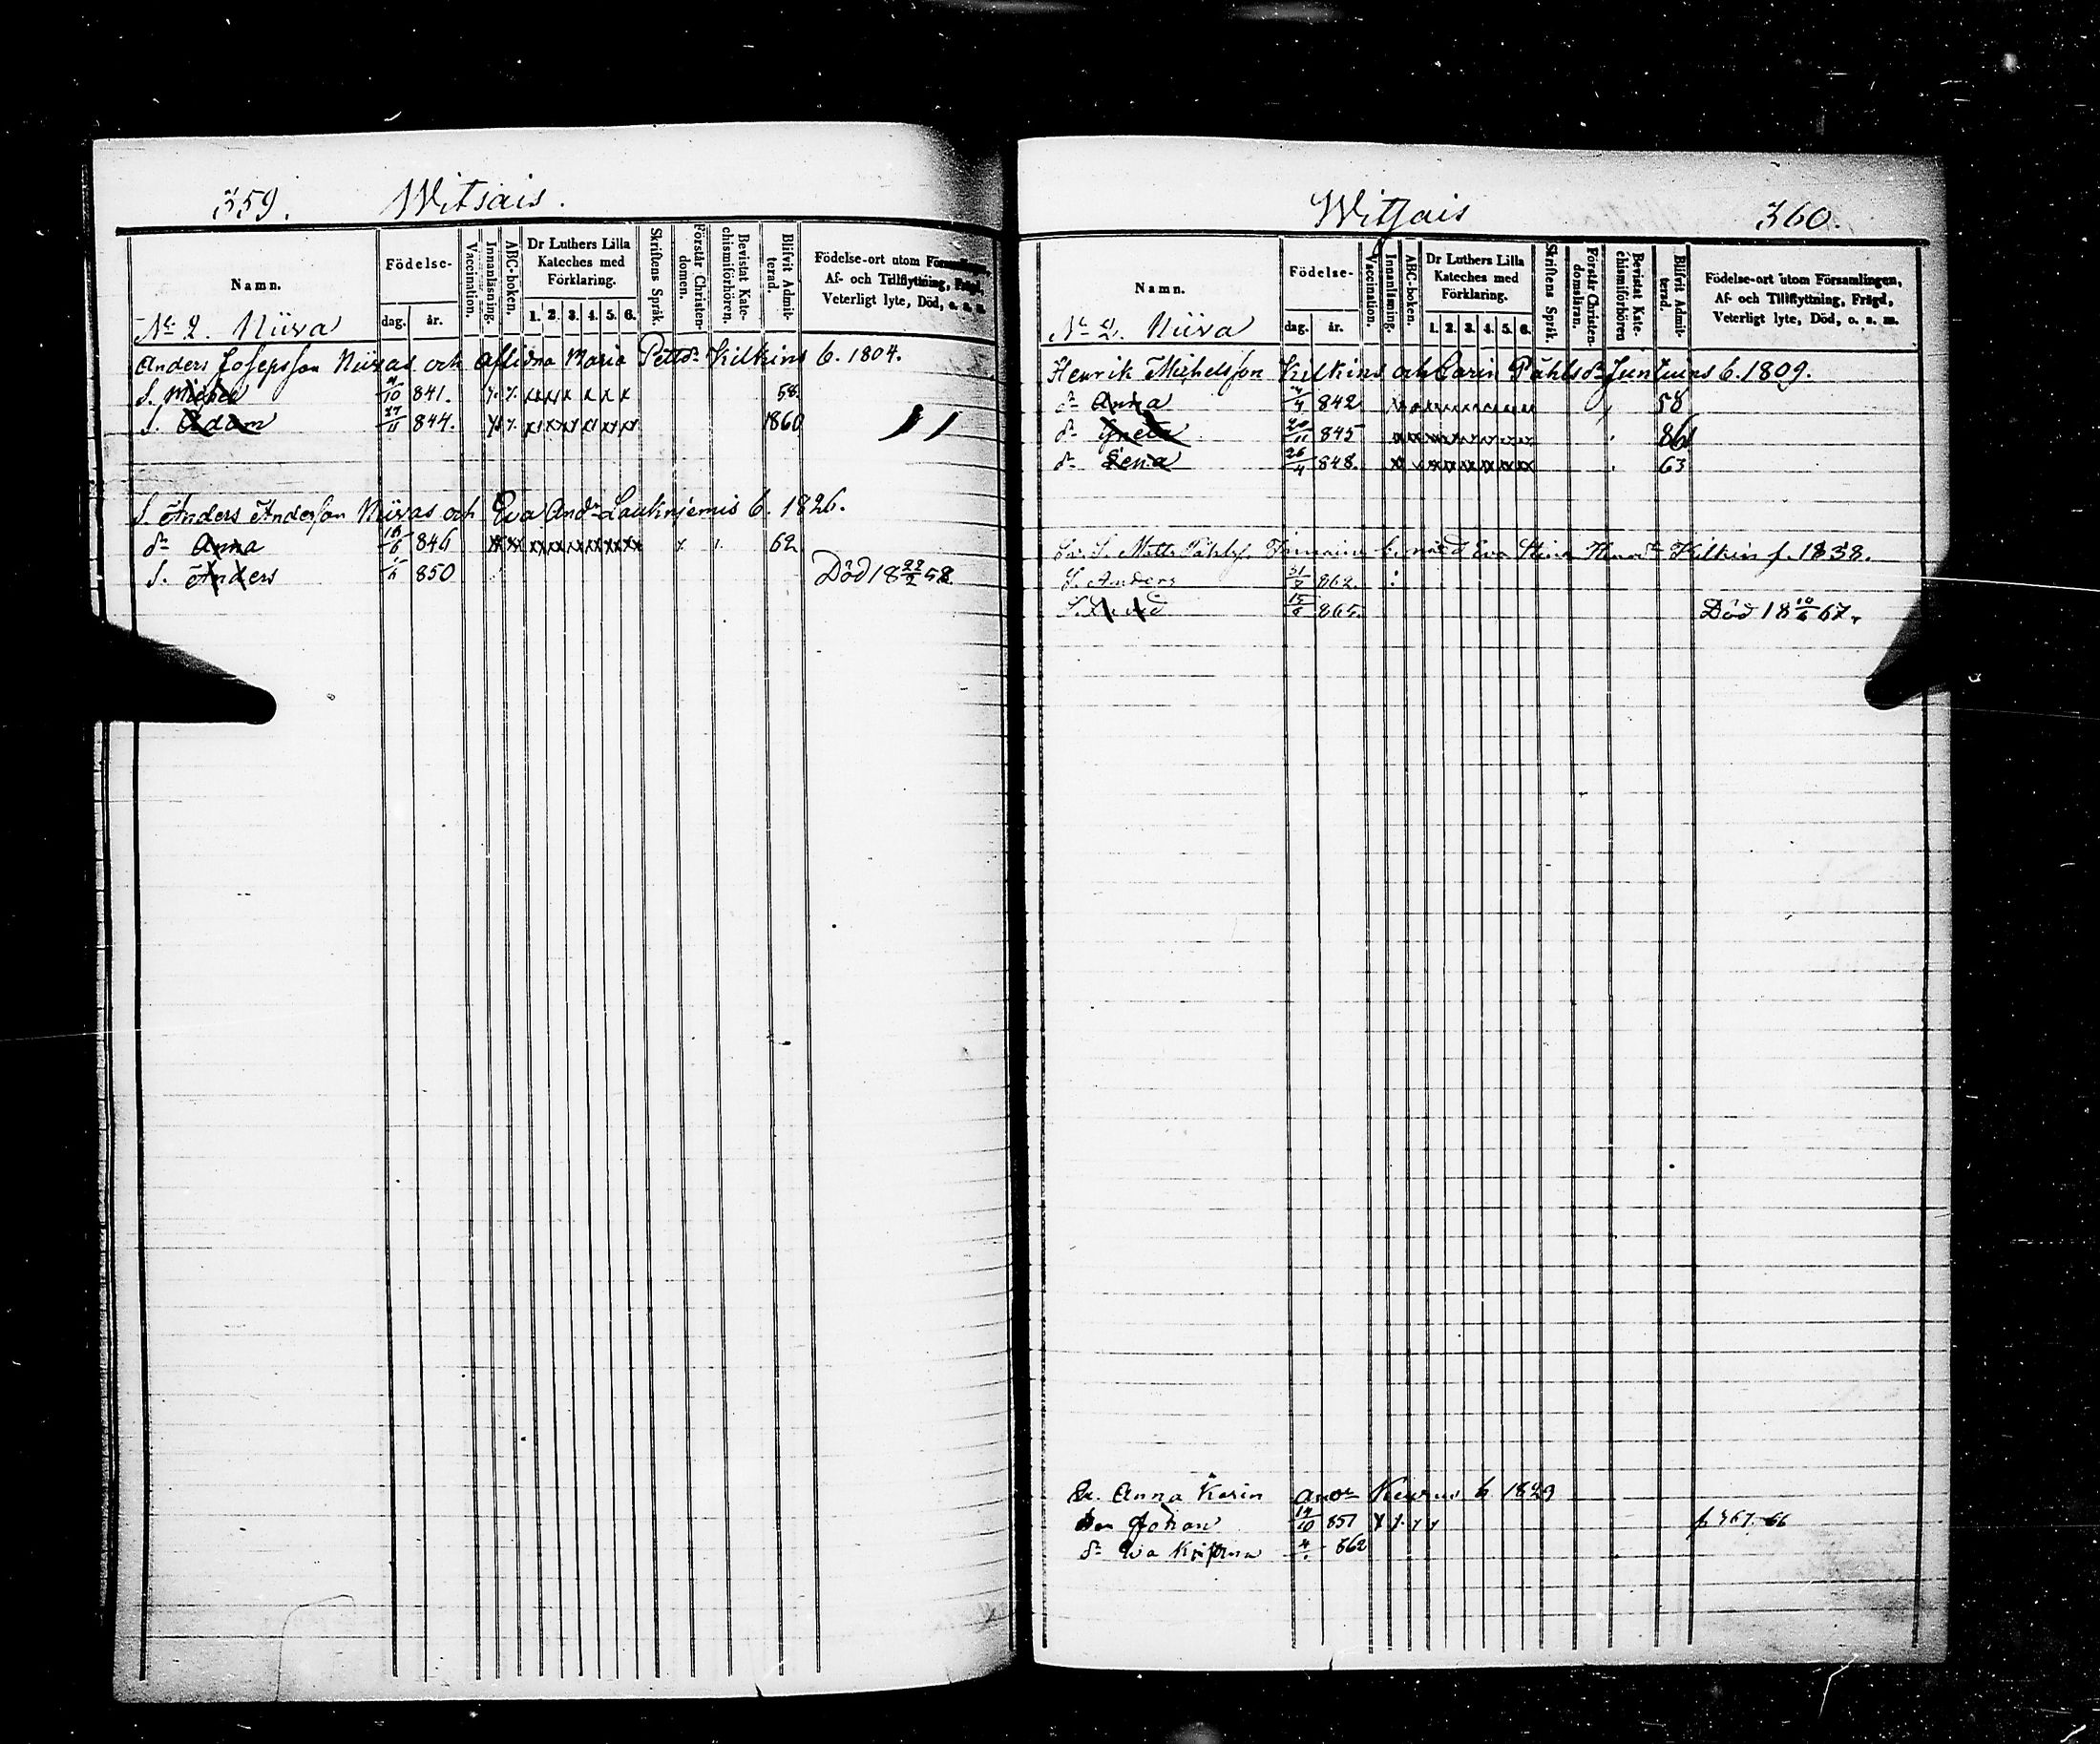 359. Witsais.
Namn.
Födelse-
dag. år.
Vaccination.
Innanläsning.
ABC-boken.
Dr Luthers Lilla
Kateches med
Förklaring.
1. 2. 3. 4. 5. 6.
Skriftens Språk.
Förstår Christen-
domen.
Bevistat Kate-
chismiförhören.
Blifvit Admit-
terad.
Födelse-ort utom Församlingen,
Af- och Tillflyttning, Frägd,
Veterligt lyte, Död, o. s. m.
No 2. Niiva
Anders Josepsson Niivas och Aflidna Maria Pettdr Kilkins b. 1804.
S. Michel 10 841. x x x x x x x x 58.
S. Adam 27/11 844. x x x x x x x x 1860
S. Anders Andersson Niivas och Eva Andr Lauknjemis b. 1826.
dr Anna 6 846 x x x x x x x x 62
S. Anders 6 850 Död 18 22/2 58
Witsais 360.
Namn.
Födelse-
dag. år.
Vaccination.
Innanläsning.
ABC-boken.
Dr Luthers Lilla
Kateches med
Förklaring.
1. 2. 3. 4. 5. 6.
Skriftens Språk.
Förstår Christen-
domsläran.
Bevistat Kate-
chismiförhören
Blifvit Admit-
terad.
Födelse-ort utom Församlingen,
Af- och Tillflyttning, Frägd,
Veterligt lyte, Död, o. s. m.
No 2. Niiva
Henrik Michelsson Kilkins och Carin Påhlsdr Juntuins b. 1809.
dr Anna 4 842 x x x x x x x x 58
dr Greta 20/11 845 x x x x x x x x 861
dr Lena 26/4 848. x x x x x x x x 63
S. Matts Påhlss. b. med Eva Stina Henrdr Kilkin f. 1838.
S. Anders 31 862.
S. 15 865. Död 18 10/6 67.
Anna Karin Andr b 1829
Son Johan 14/10 851 x x x x f 367. 66
dr Eva Kristina 4 862